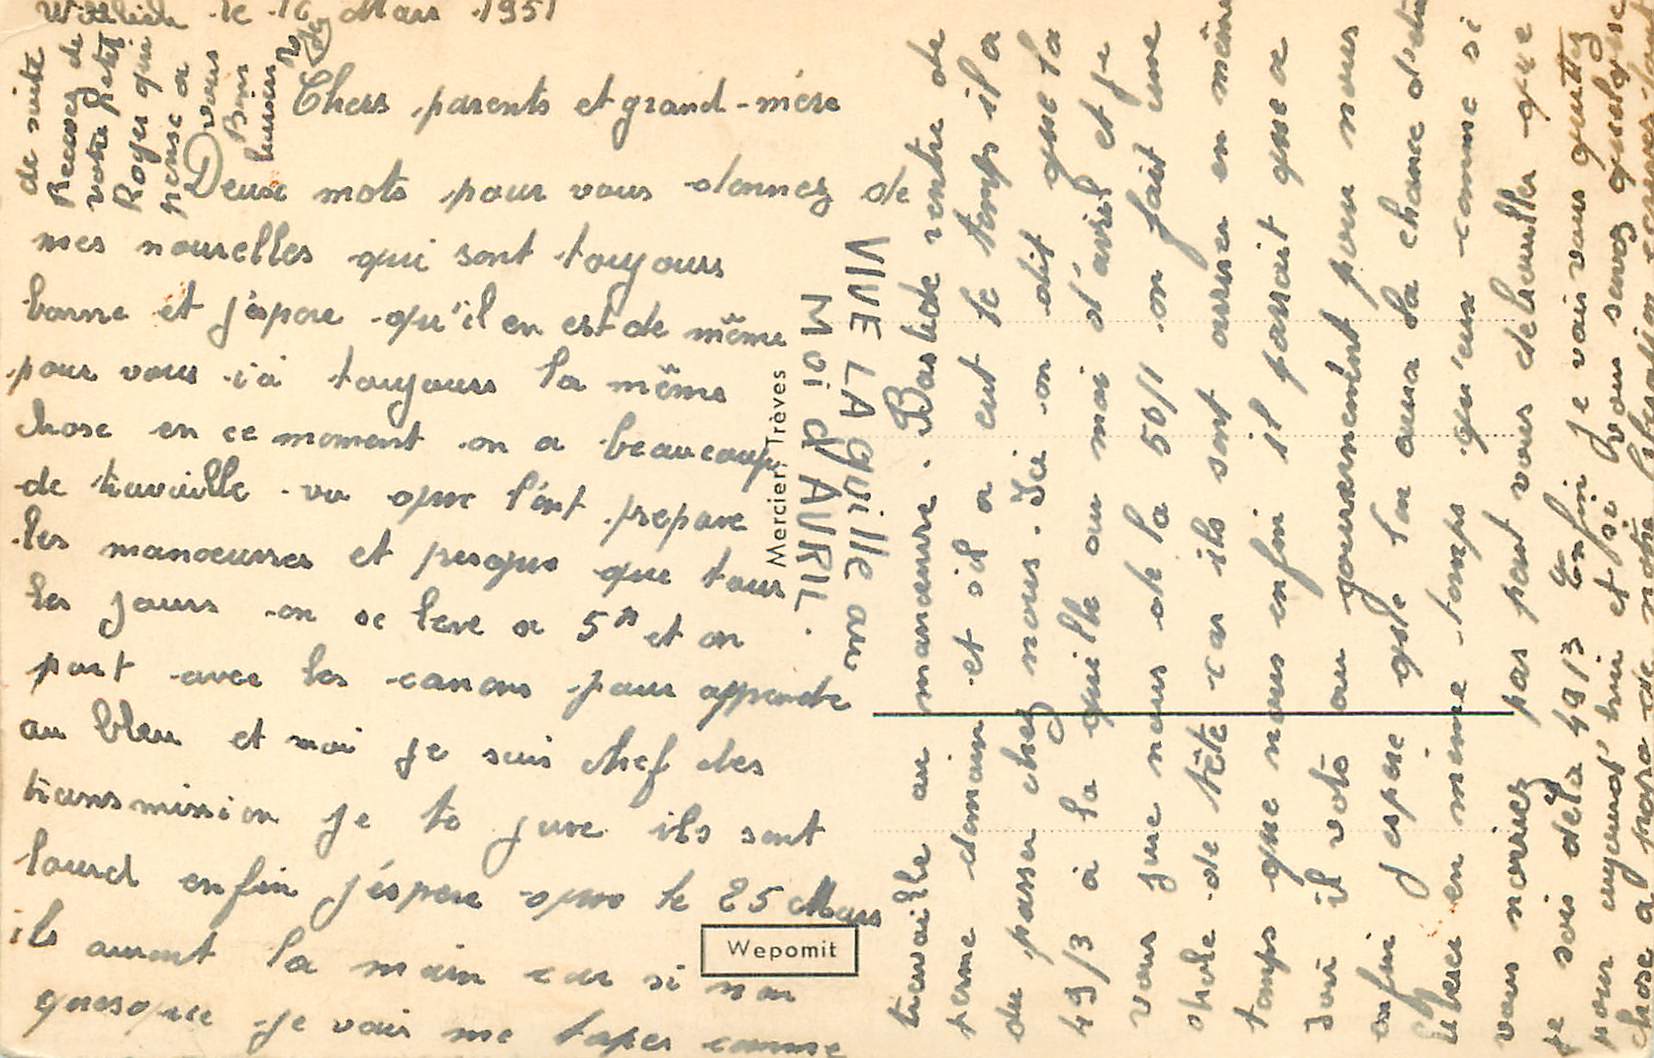 Wittlich le 16 Mars 1951
Chers parents et grand-mère
Deux mots pour vous donnez de
mes nouvelles qui sont toujours
bonne et j'éspore qu'il en est de même
pour vous ici toujours la même
chose en ce moment on a beaucoup
de travaille vu que l'ont prepare
les manœuvres et presque que tous
les jours on se leve a 5h et on
part avec les canons pour apprende
au bleu et moi je suis chef des
transmission je te jure ils sont
lourd enfin j'éspere que le 25 Mars
ils auront la main car si non
quesque je vais me taper comme
travaille au manœuvre. Bastide rentre de
perme demain et où a eut le temps il a
du passer chez nous. Ici on dit que la
49/3 à la quille au moi d'avril et je
vous jure nous de la 50/1 on fait une
drole de tête car ils sont arrivé en même
temps que nous enfin il parrait que a
soir il vote au gouvernement pour nous
enfin j'espere qu'le l'on aura la chance d'être
liberer en même temps qu'eux comme si
vous n'aurez pas pout vous debrouiller que
je sois dela 49/3 Enfin je vais vous quittez
pour aujourd'hui et si vous savez quelque
chose a propo de notre liberation ecriver-tout
de suite
Recevez de
votre petit
Roger qui
pense a
vous
Bons
baisers
VIVE LA quille au
Moi d'AVRIL.
Mercier, Trèves
Wepomit